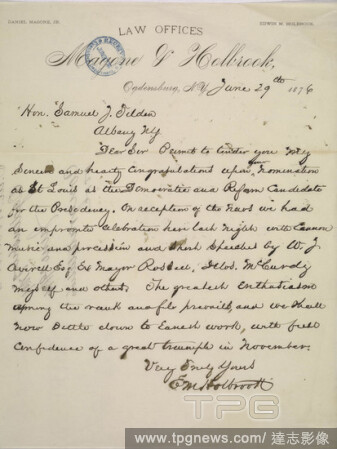 DANIEL MAGONE, JR.
EDWIN M. HOLBROOK.
LAW OFFICES
Magone & Holbrook,
Ogdensburg, N.Y. June 29th 1876
Hon. Samuel J. Tilden
Albany NY
Dear Sir Permit to tender you my
sincere and hearty Congratulations upon nomination
at St Louis as the Democratic and Reform Candidate
for the Presidency. On reception of the news we had
an impromptu Celebration here last night with Cannon
music and procession and short speeches by W. J.
Averell Esq Ex Mayor Rossell, Delos McCurdy
myself and others. The greatest Enthusiasm
among the rank and file prevails, and we shall
now Settle down to Earnest work, with full
Confidence of a great triumph in November.
Very Truly Yours
E M Holbrook
TPG
www.tpgnews.com/ 達志影像